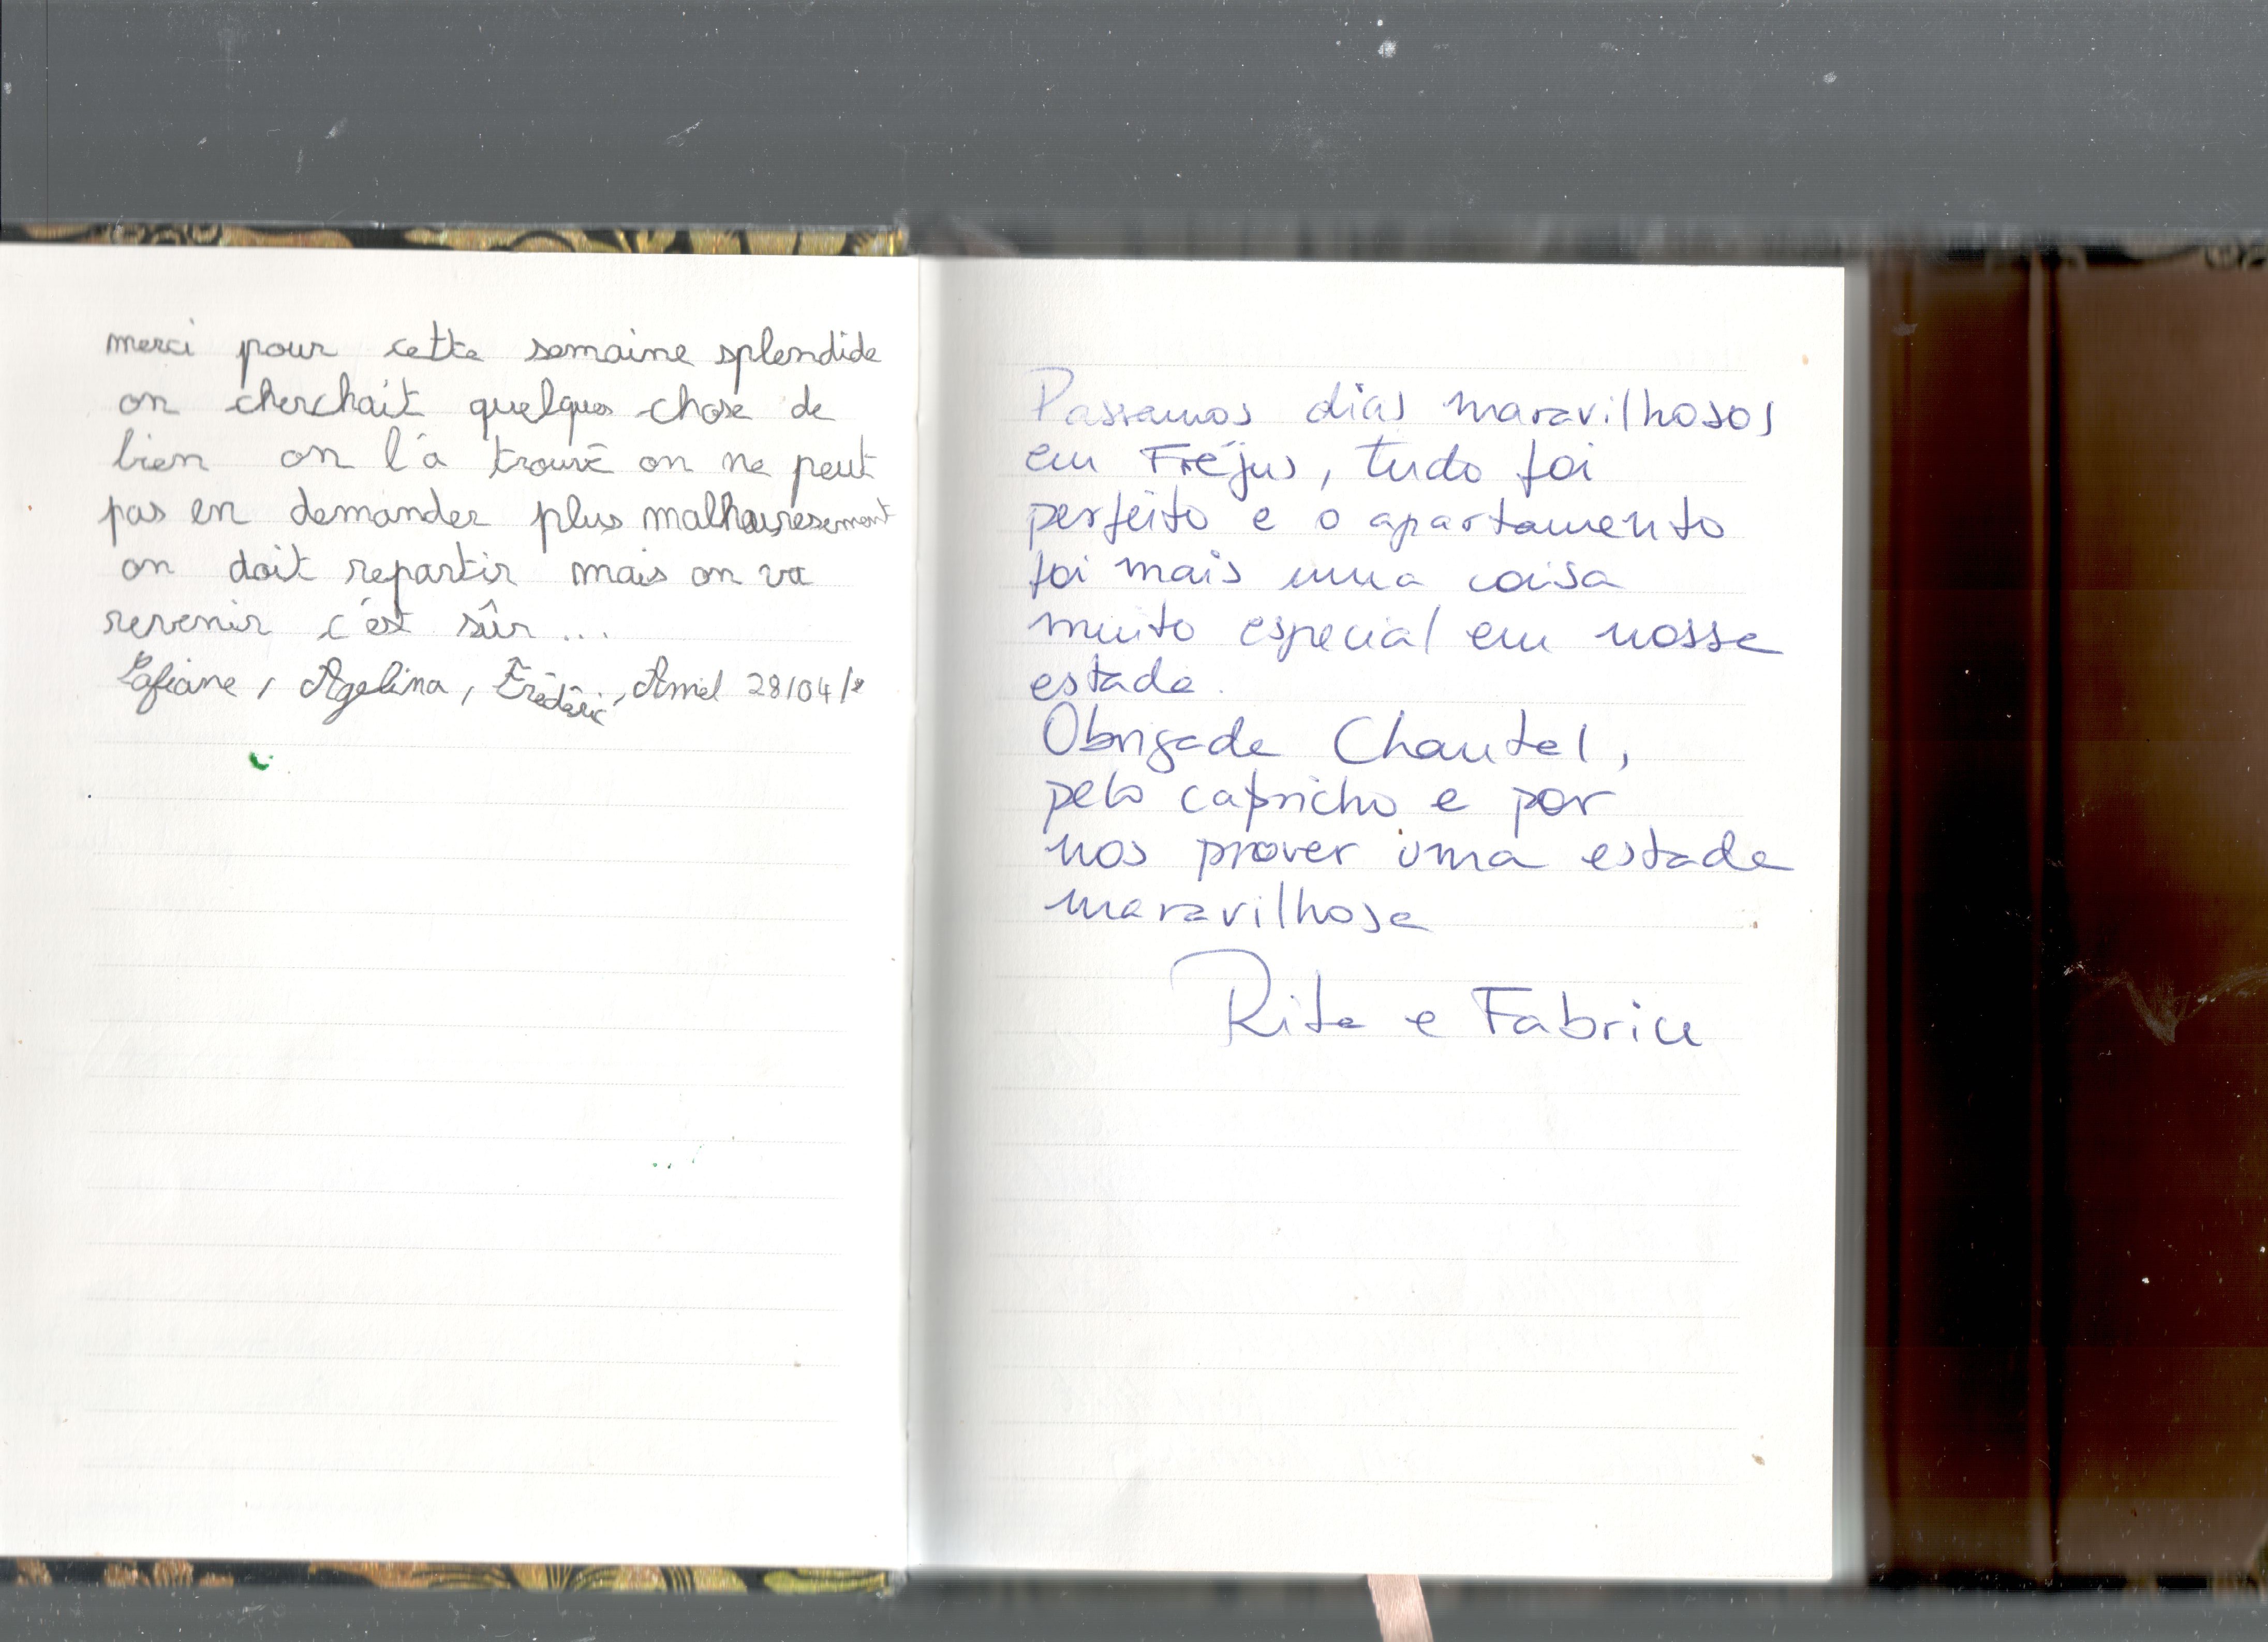 merci pour cette semaine splendide
on cherchait quelques chose de
bien on l'a trouvé on ne peut
pas en demander plus malheuresement
on doit repartir mais on va
revenir c'est sûr ...
Agelina, Frédéric, Amel 28/04/
Passamos dias maravilhosos
em Fréjus, tudo foi
perfeito e o apartamento
foi mais uma coisa
muito especial em nossa
estada.
Obrigada Chantal,
pelo capricho e por
nos prover uma estada
maravilhosa
Rita e Fabrice